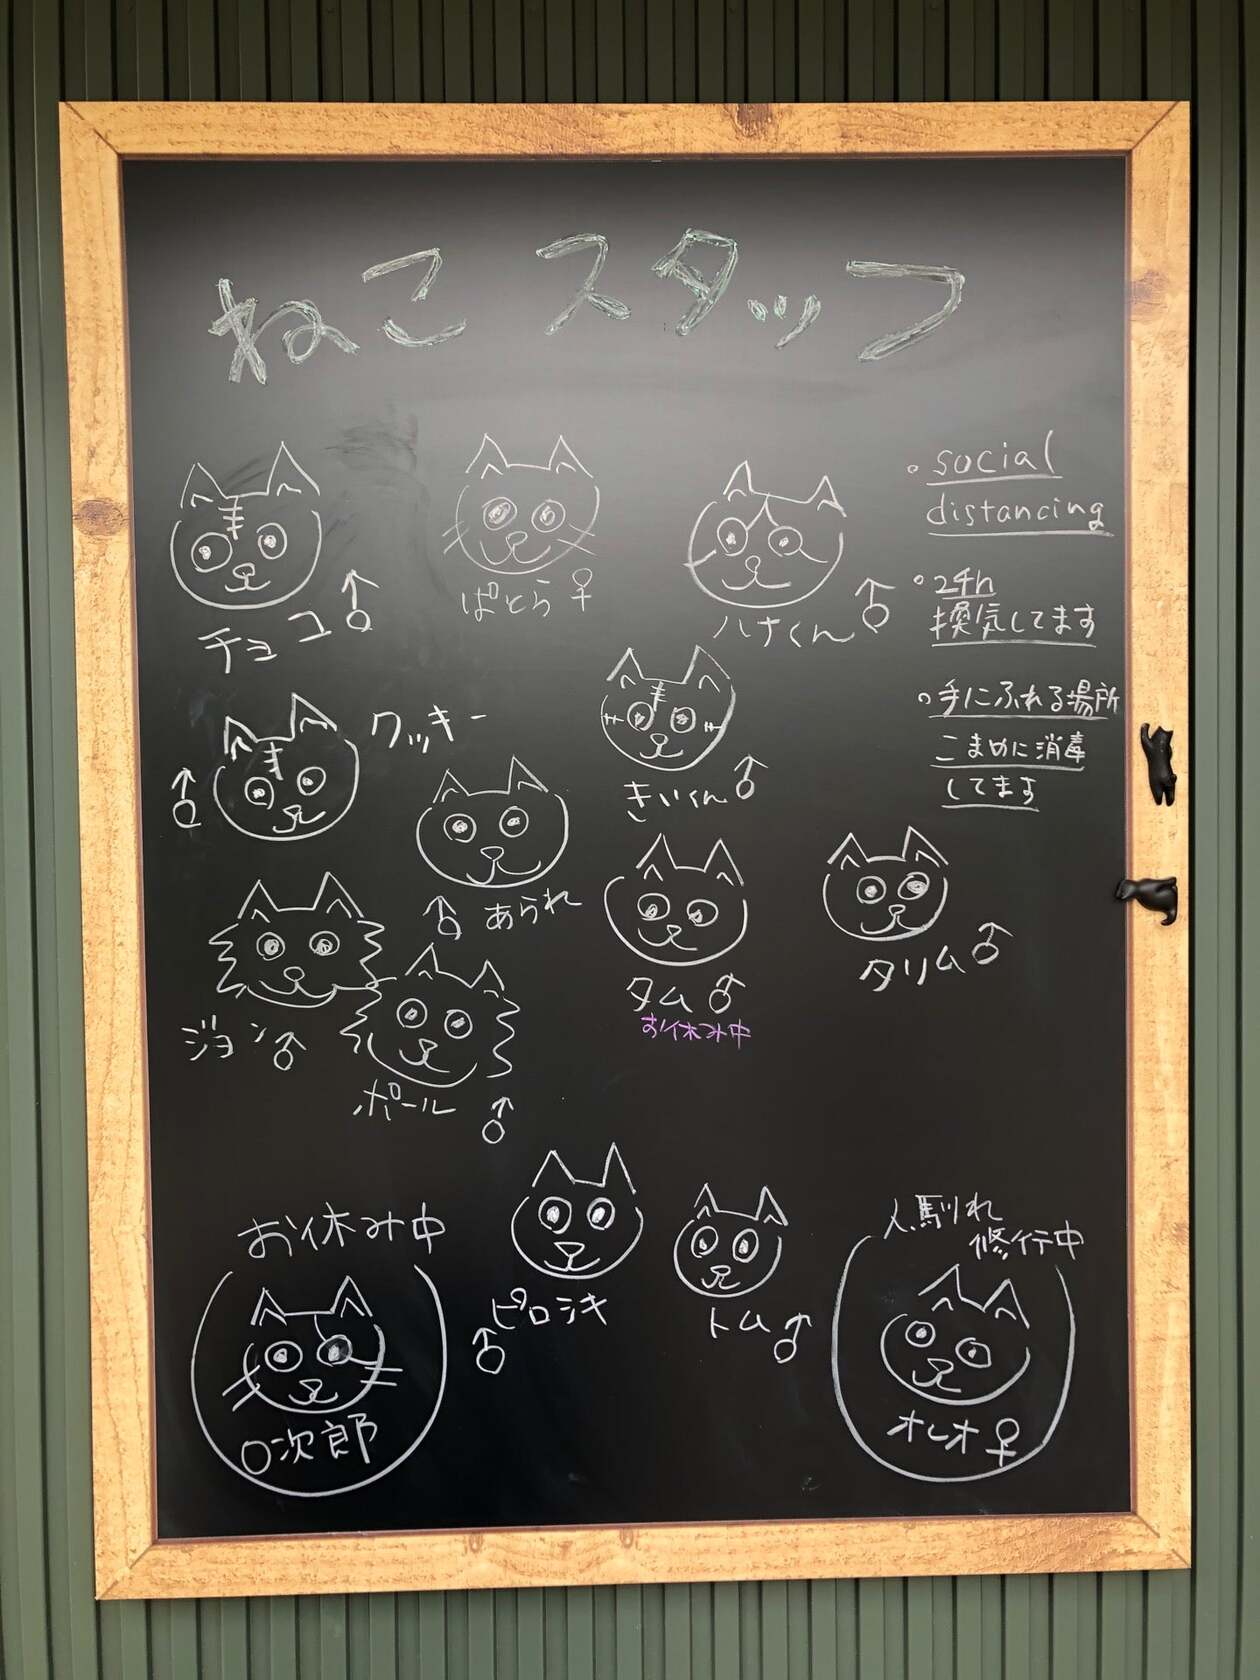 ねこスタッフ
チョコ♂
ぱとら♀
ハナくん♂
。social
distancing
。24h
換気してます
。手にふれる場所
こまめに消毒
してます
クッキー
♂
きいくん♂
あられ
♂
タム♂
お休み中
タリム♂
ジョン♂
ポール
♂
お休み中
〇次郎
ピロシキ
♂
トム♂
人馴れ
修行中
オレオ♀